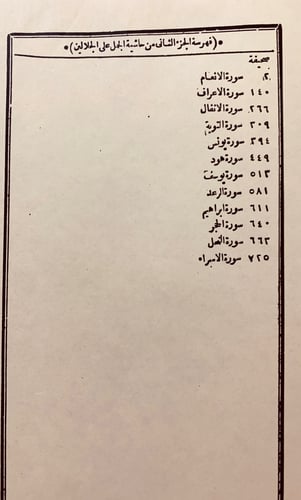 *(فهرسة الجزء الثانى من حاشية الجمل على الجلالين)*
صحيفة
٢. سورة الانعام
١٤٠ سورة الاعراف
٢٦٦ سورة الانفال
٣٠٩ سورة التوبة
٣٩٤ سورة يونس
٤٤٩ سورة هود
٥١٣ سورة يوسف
٥٨١ سورة الرعد
٦١١ سورة ابراهيم
٦٤٠ سورة الحجر
٦٦٣ سورة النحل
٧٢٥ سورة الاسراء